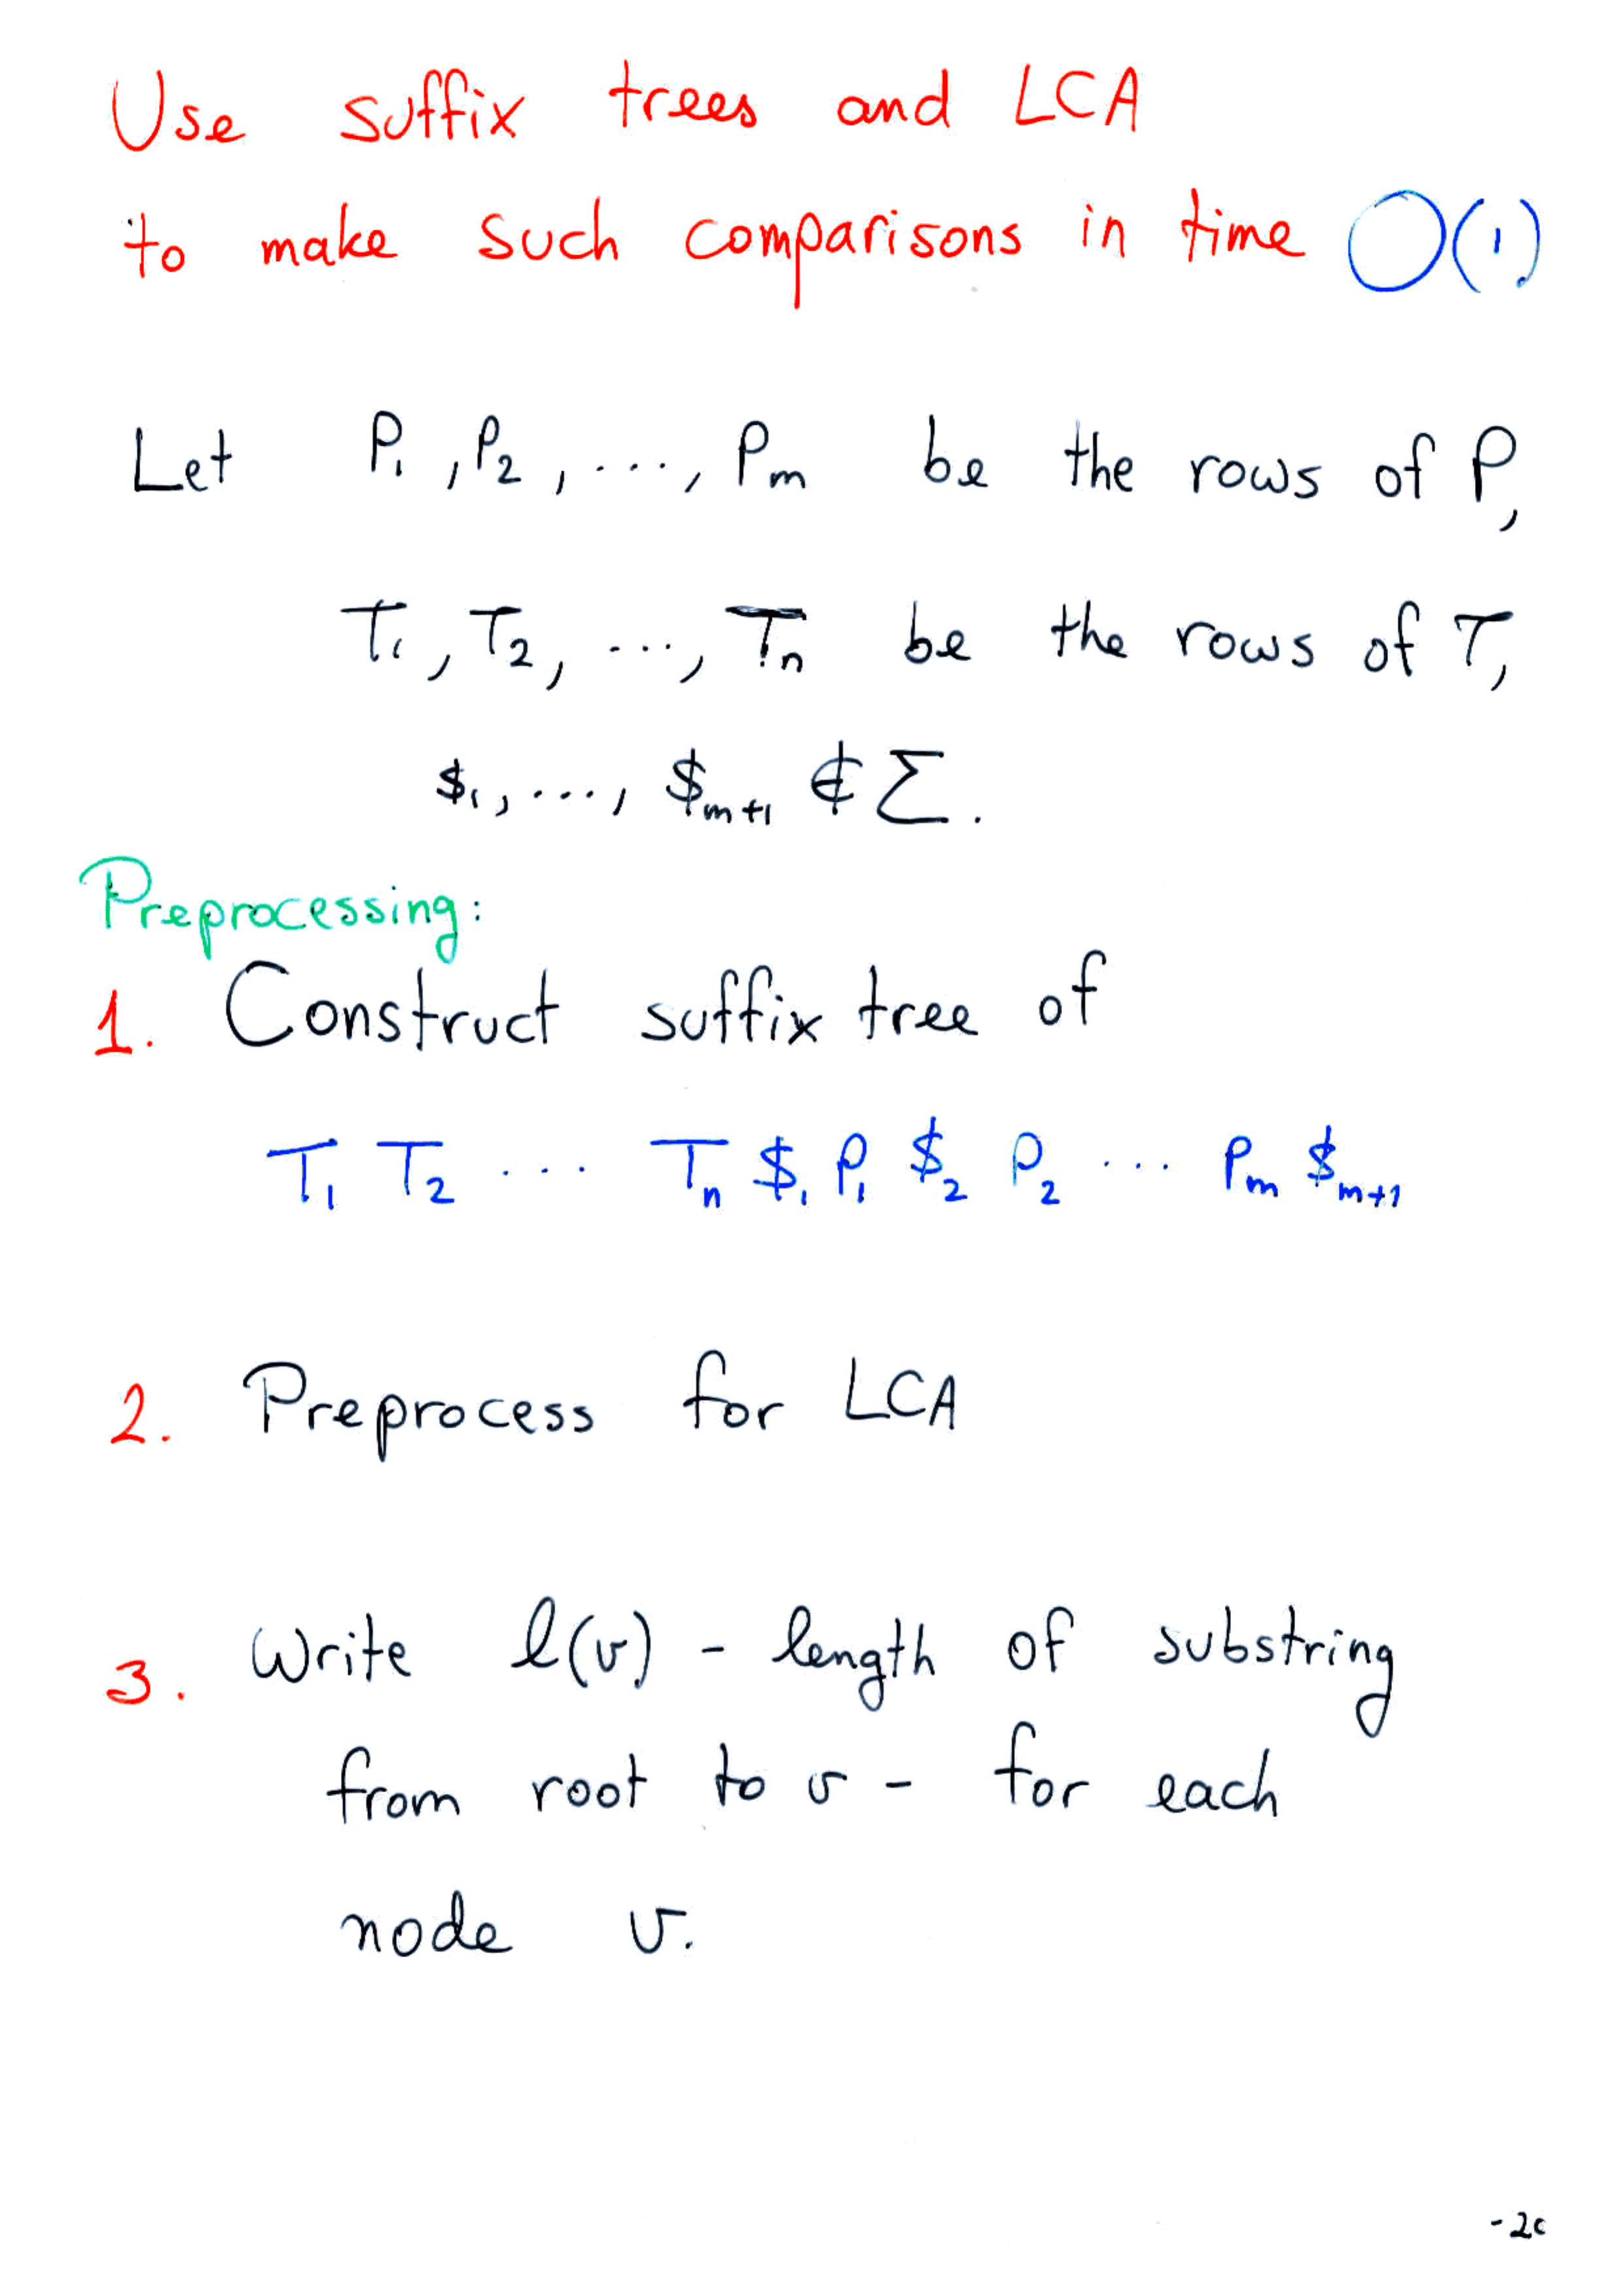 Use suffix trees and LCA
to make such comparisons in time O(1)
Let P₁, P₂, ..., Pₘ be the rows of P,
T₁, T₂, ..., Tₙ be the rows of T,
$₁, ..., $ₘ₊₁ ∉ Σ.
Preprocessing:
1. Construct suffix tree of
T₁ T₂ ... Tₙ $₁ P₁ $₂ P₂ ... Pₘ $ₘ₊₁
2. Preprocess for LCA
3. Write l(v) - length of substring
from root to v - for each
node v.